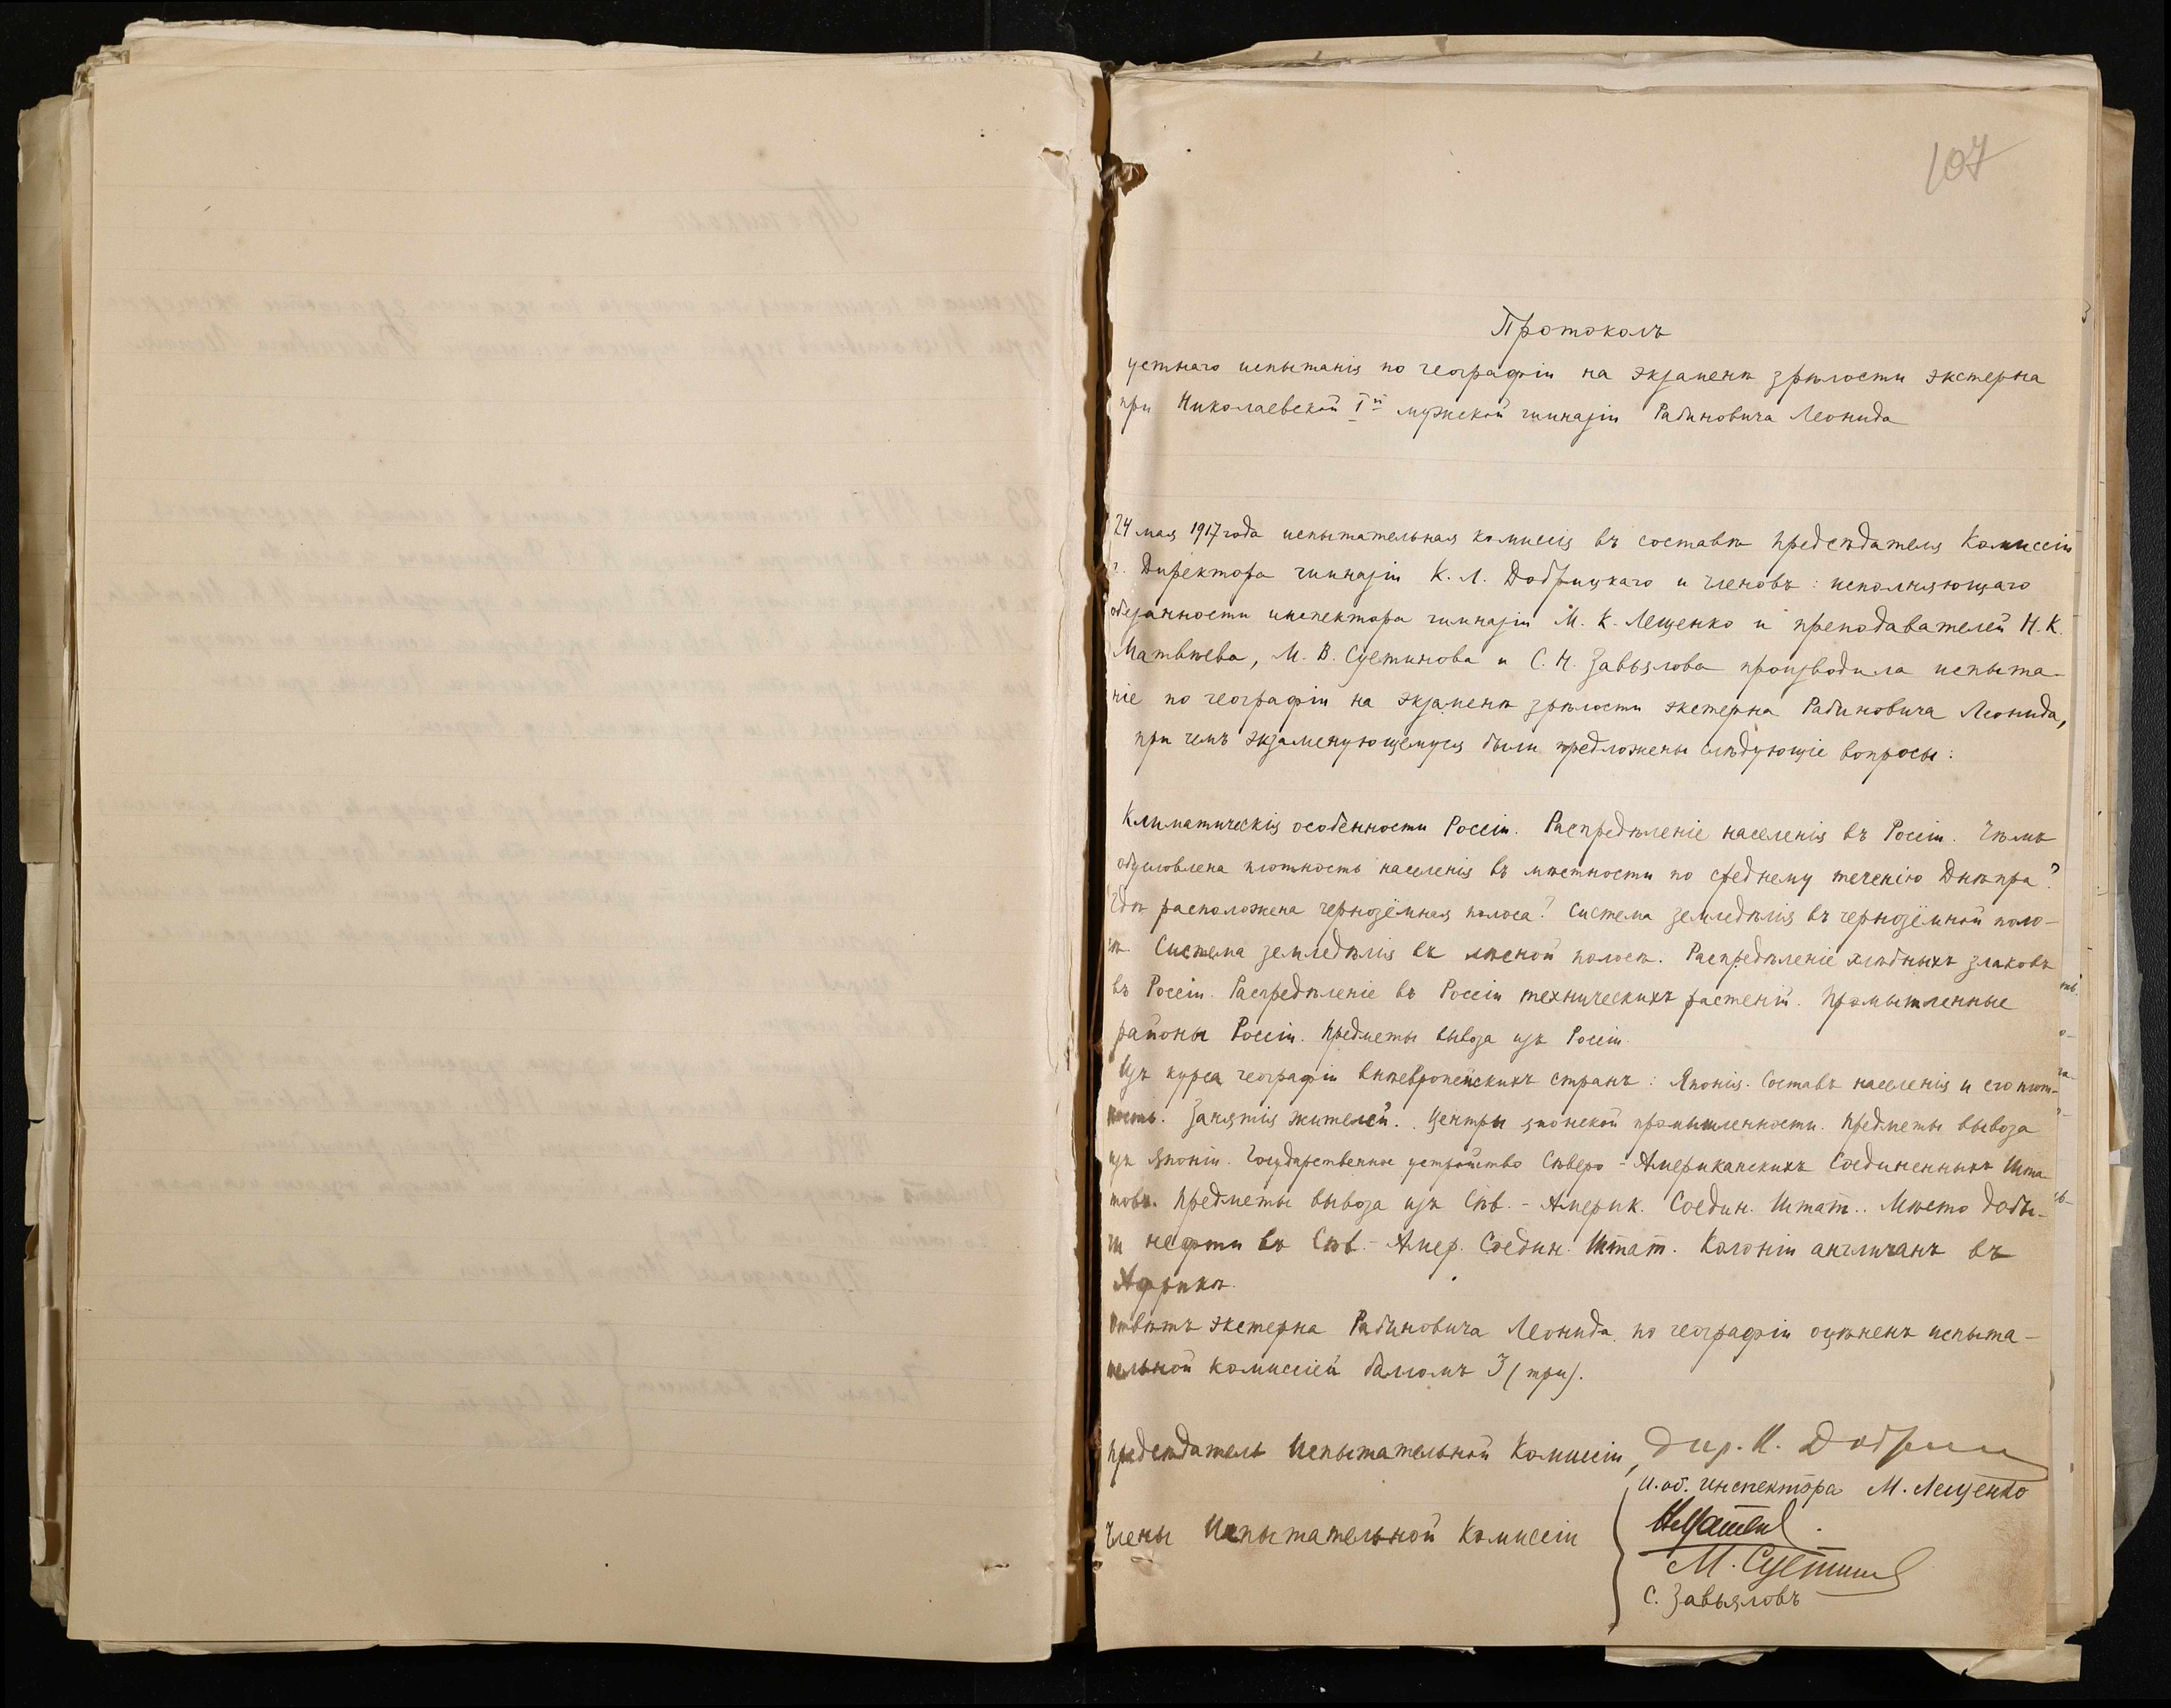 107
Протоколъ
устнаго испытанія по географіи на экзаменѣ зрѣлости экстерна
при Николаевской I-й мужской гимназіи Рабиновича Леонида
24 мая 1917 года испытательная комиссія въ составѣ предсѣдателя Комиссіи
г. Директора гимназіи К. Л. Добрицкаго и членовъ: исполняющаго
обязанности инспектора гимназіи М. К. Лещенко и преподавателей Н. К.
Матвѣева, М. В. Суетинова и С. Н. Завьялова производила испыта-
ніе по географіи на экзаменѣ зрѣлости экстерна Рабиновича Леонида,
при чемъ экзаменующемуся были предложены слѣдующіе вопросы:
Климатическія особенности Россіи. Распредѣленіе населенія въ Россіи. Чѣмъ
обусловлена плотность населенія въ мѣстности по среднему теченію Днѣпра?
Гдѣ расположена чернозёмная полоса? Система земледѣлія въ чернозёмной поло-
сѣ. Система земледѣлія въ лѣсной полосѣ. Распредѣленіе хлѣбныхъ злаковъ
въ Россіи. Распредѣленіе въ Россіи техническихъ растеній. Промышленные
районы Россіи. Предметы вывоза изъ Россіи.
Изъ курса географіи внѣевропейскихъ странъ: Японія. Составъ населенія и его плот-
ность. Занятія жителей. Центры японской промышленности. Предметы вывоза
изъ Японіи. Государственное устройство Сѣверо-Американскихъ Соединенныхъ Шта-
товъ. Предметы вывоза изъ Сѣв.-Америк. Соедин. Штат.. Мѣсто добы-
чи нефти въ Сѣв.-Амер. Соедин. Штат. Колоніи англичанъ въ
Африкѣ.
Отвѣтъ экстерна Рабиновича Леонида по географіи оцѣненъ испыта-
тельной комиссіей балломъ 3 (три).
Предсѣдатель Испытательной Комиссіи, Дир. К. Добриц
И. об. инспектора М. Лещенко
Члены Испытательной Комиссіи
М. Суетинов
С. Завьяловъ